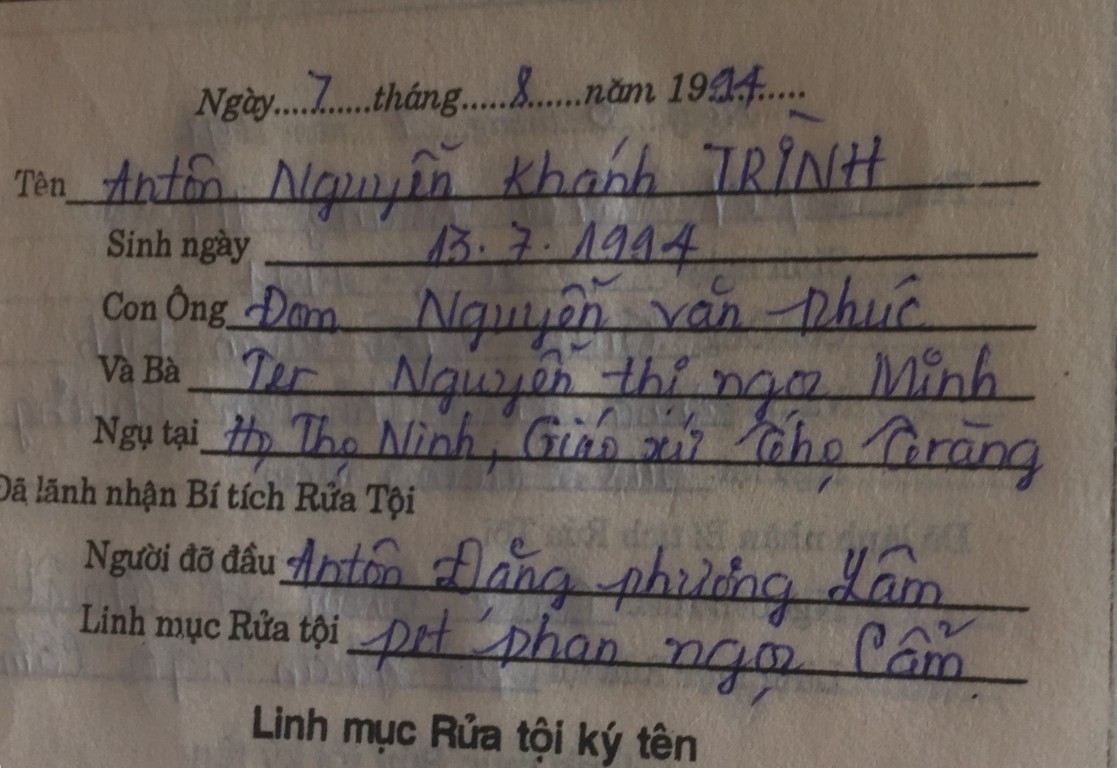 Ngày....7......tháng.....8......năm 1994......
Tên Antôn Nguyễn Khánh TRÌNH
Sinh ngày 13.7.1994
Con Ông Đom Nguyễn văn phúc
Và Bà Ter Nguyễn thị ngọc Minh
Ngụ tại Họ Thọ Ninh, Giáo xứ Thọ Tràng
Đã lãnh nhận Bí tích Rửa Tội
Người đỡ đầu Antôn Đặng phương Lâm
Linh mục Rửa tội pet phan ngọc Cẩm
Linh mục Rửa tội ký tên